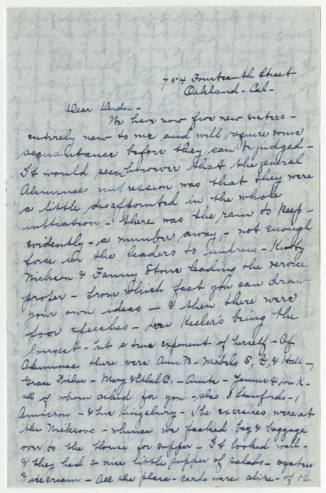 754 Fourteenth Street
Oakland - Cal -
Dear
We have now five new sisters -
entirely new to me and will require some
acquaintance before they can be judged -
It would seem however that the general
Alumnae impression was that they were
a little disappointed in the whole
initiation - there was the rain to keep -
evidently - a number away - not enough
force in the leaders to - Kirby
& Fanny Stone leading the service
proper - from which fact you can draw
your own ideas - & then there were
poor speeches - Keeler's being the
longest - but a true exponent of herself - Of
Alumnae there were Ann B - Mabels S, G, & Hall -
Grace Fisher - Mary & Ethel O. - -
all of whom asked for you - also Stanfords - 1
& Kingsbury - The exercises were at
the - whence we packed bag & baggage
over to the House for supper - It looked well -
& they had a nice little supper of salads - oysters
& ice cream - All the place-cards were alike - of the